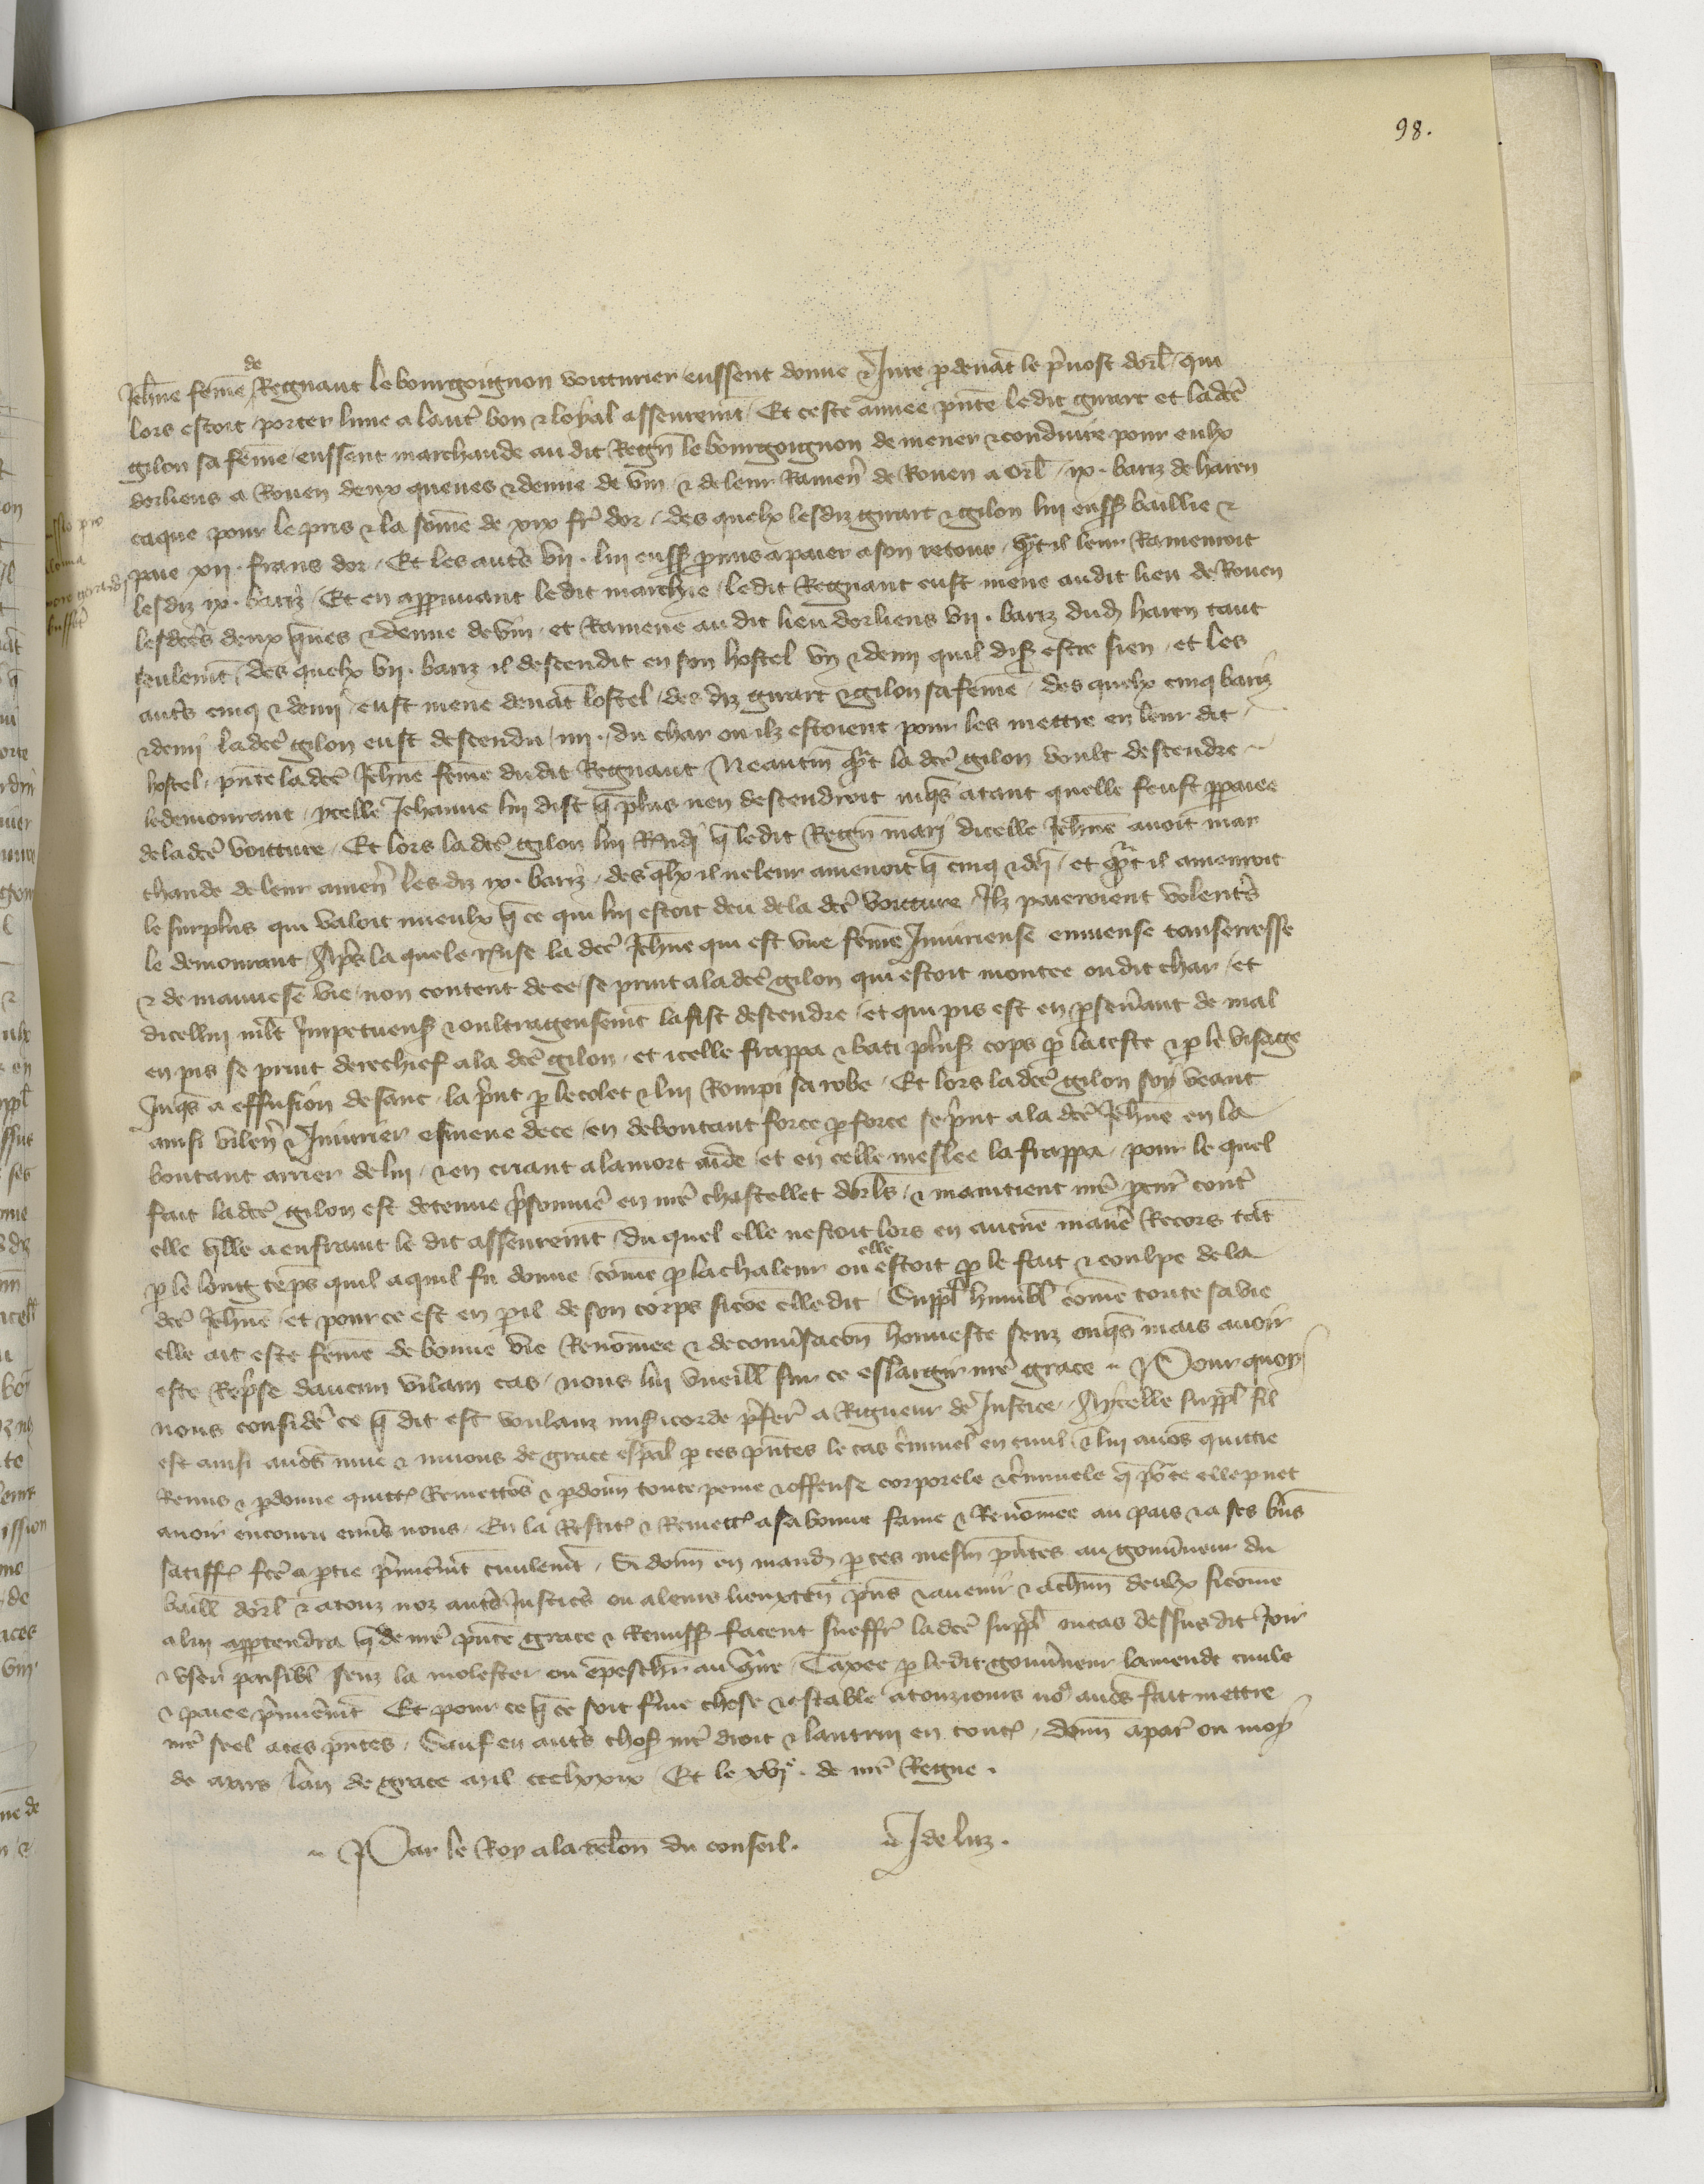 98.
de
Jehne feme Regnaut le bourgoignon voiturier eussent donne & Jure p devat le pvost dorl / qui
lors estoit / porter lune a lautre bon & loyal asseuremt / Et ceste annee pnte ledit girart et la dce
gilon sa feme / eussent marchande au dit Regn le bourgoignon de mener & conduire pour eulx
dorliens a Rouen deux queues & demie de vin / & de leur Ramen de Rouen a orl / ix . bariz de haren
caque pour le pris & la some de xix fr dor / des quelx lesdiz girart & gilon lui euss baillie &
paie xii . frans dor / Et les auts vii . lui euss pmis a paier a son retour / qt il leur Ramenroit
lesdiz ix . bariz / Et en apprinant ledit marchie / ledit Regnaut eust mene audit lieu de Rouen
lesdces deux qnes & demie de vin / et Ramene au dit lieu dorliens vii . bariz dud haren tant
seulemt / des quelx vii . bariz il descendit en son hostel un & demi quil dis estre sien / et les
auts cinq & demi / eust mene devat lostel / des diz girart & gilon sa feme / des quelx cinq bariz
& demi la dce gilon eust descendu / iiii . du char ou ilz estoient pour les mettre en leur dit /
hostel / pnte la dce Jehne feme du dit Regnaut / Neantm qt la dce gilon voult descendre
le demourant / ycelle Jehanne lui dist q plus nen descendroit iusqs atant quelle feust ppaiee
de la dce voitture / Et lors la dce gilon lui Rndi q le dit Regn mari dicelle Jehne avoit mar
chande de leur amen les diz ix . bariz / des qlx il ne leur amenoit q cinq & di / et qt il amenroit
le surplus qui valoit mieulx q ce qui lui estoit deu de la dce voitture / Ilz paieroient volents
le demourant / Aps la quele Rnse la dce Jehne qui est une feme Iniurieuse ennieuse tanseresse
& de mauvese vie / non content de ce / se print a la dce gilon qui estoit montee ou dit char / et
dicellui mlt impetueus & oultrageusemt la fist descendre / et qui pis est en psevant de mal
en pis se print derechief a la dce gilon / et icelle frappa & bati plus cops p la teste & p le visage
Jusqs a effusion de sanc / la pnt p le colet & lui Rompi sa robe / Et lors la dce gilon soy veant
ainsi vilen & Iniurier esmeue de ce / en deboutant force p force se pnt a la dce Jehne en la
boutant arrier de lui / & en criant a la mort aide / et en celle meslee la frappa / pour le quel
fait la dce gilon est detenue psonnie en nre chastellet dorls / & maintient nre pcur cont
elle qlle a enfraint le dit asseuremt / Du quel elle nestoit lors en aucune manie Recors tat
p le long teps quil a quil fu donne / come p la chaleur ou elle estoit p le fait & coulpe de la
dce Jehne / et pour ce est en pil de son corps sicoe elle dit / Suppl humbl come toute sa vie
elle ait este feme de bonne vie Renomee & de convsacon honneste senz onqs mais avoir
este Repse daucun vilain cas / nous lui vueill sur ce eslargir nre grace Pour quoy
nous conside ce q dit est voulanz misicorde pfer a Rigueur de Justice / A ycelle suppl sil
est ainsi avos mue & muons de grace espal p ces pntes le cas cminel en civil & lui avos quittie
Remis & pdonne quitt Remettos & pdonn toute peine & offense corporele & cminele q po ce elle puet
avoir encouru envs nous / En la Restit & Remett a sa bonne fame & Renomee au pais & a ses bns
satiff fce a ptie pmiemt civilemt / Si donn en mand p ces mesm pntes au gouvneur du
baill dorl & a touz noz auts Justics ou a leurs lieuxten pns & avenir & a chun deulx sicome
a lui apptendra q de nre pnte grace & Remiss facent sueffr la dce suppl ou cas dessus dit Joir
& user paisibl senz la molester ou epeschr au qtre / Taxee p le dit gouvneur lamende civile
& paiee pmiemt Et pour ce q ce soit fme chose & estable a touziours no avos fait mettre
nre seel a ces pntes / Sauf en auts chos nre droit & lautrui en tout / donn a par ou moys
de mars / lan de grace mil ccclxxix / Et le xvie . de nre Regne .
Par le Roy a la relon du conseil . J de luz .